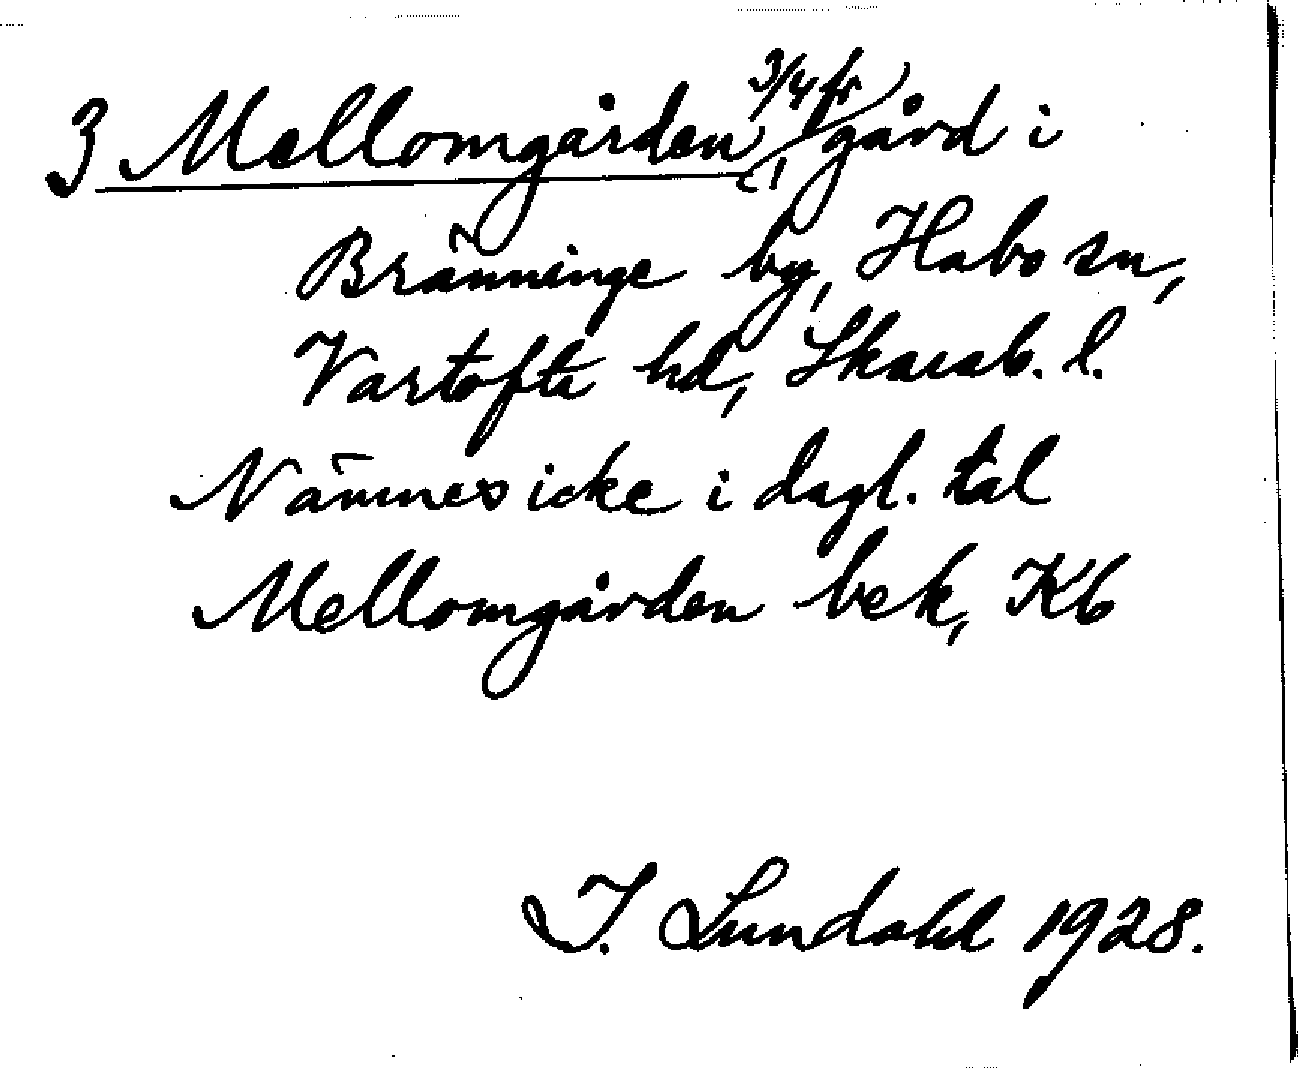 3 Mellomgården, 3/4 fr, gård i
Bränninge by, Habo sn,
Vartofta hd, Skarab. l.
Nämnes icke i dagl. tal
Mellomgården bek, Kb
I. Lundahl 1928.